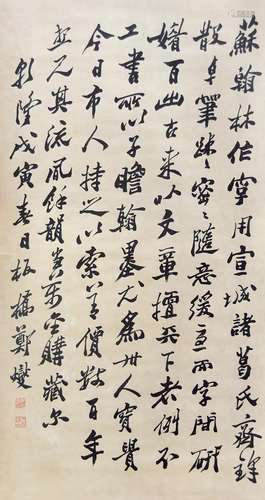 蘇翰林作字用宣城諸葛氏齊鋒
散卓筆疎〻密〻隨意緩急而字間妍
媚百出古來以文章擅天下者例不
工書所以子瞻翰墨尤為世人寶貴
今日市人持之以索善價數百年
其流風餘韻萬金購藏尔
乾隆戊寅春日板橋鄭燮